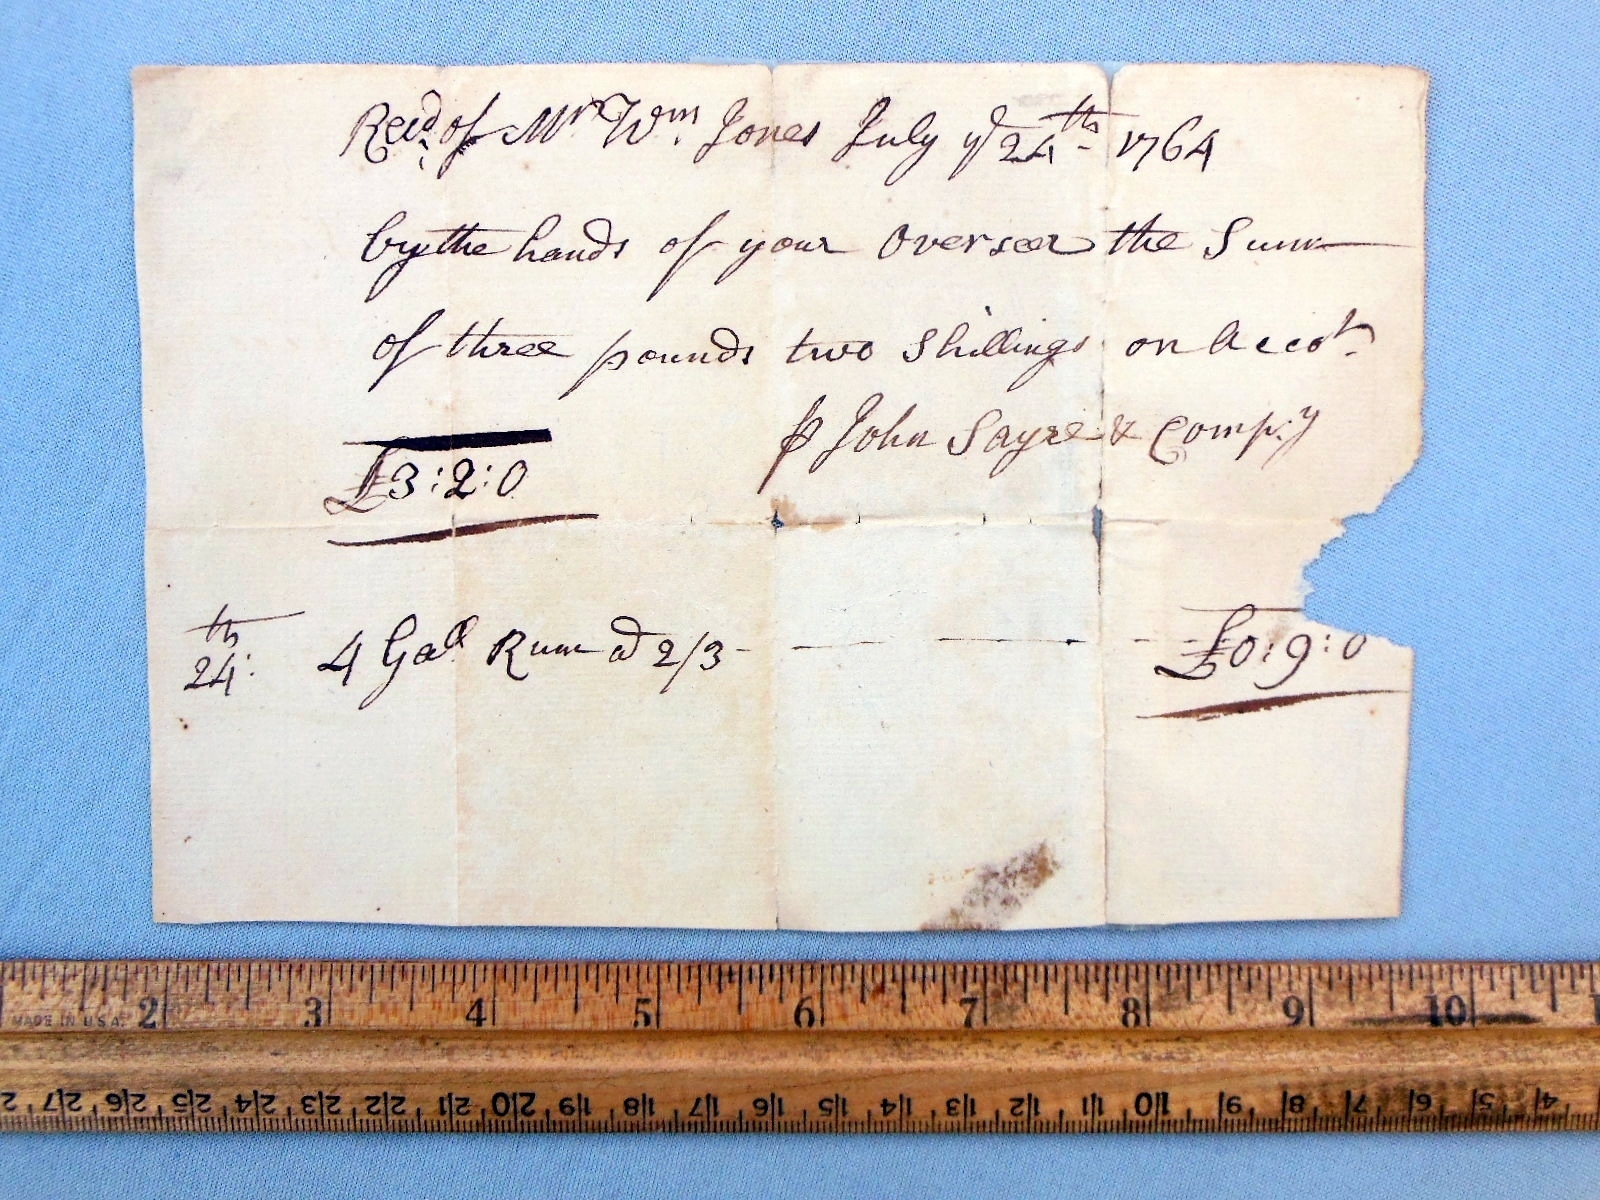 Recd. of Mr Wm. Jones July ye 24th 1764
by the hands of your Overseer the Sum
of three pounds two Shillings on Accot.
p John Sayre & Compy
£3:2:0
24th: 4 Gall Rum @ 2/3 £0:9:0
MADE IN U.S.A. 2 3 4 5 6 7 8 9 10
27 26 25 24 23 22 21 20 19 18 17 16 15 14 13 12 11 10 9 8 7 6 5 4